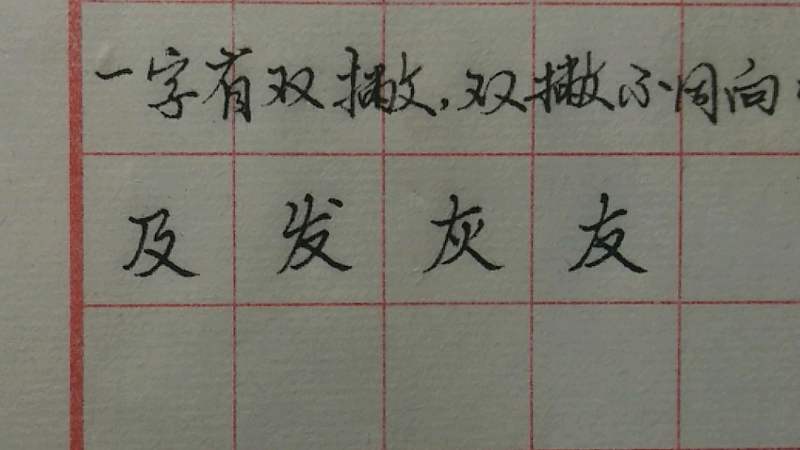 一字有双撇,双撇不同向
及发灰友